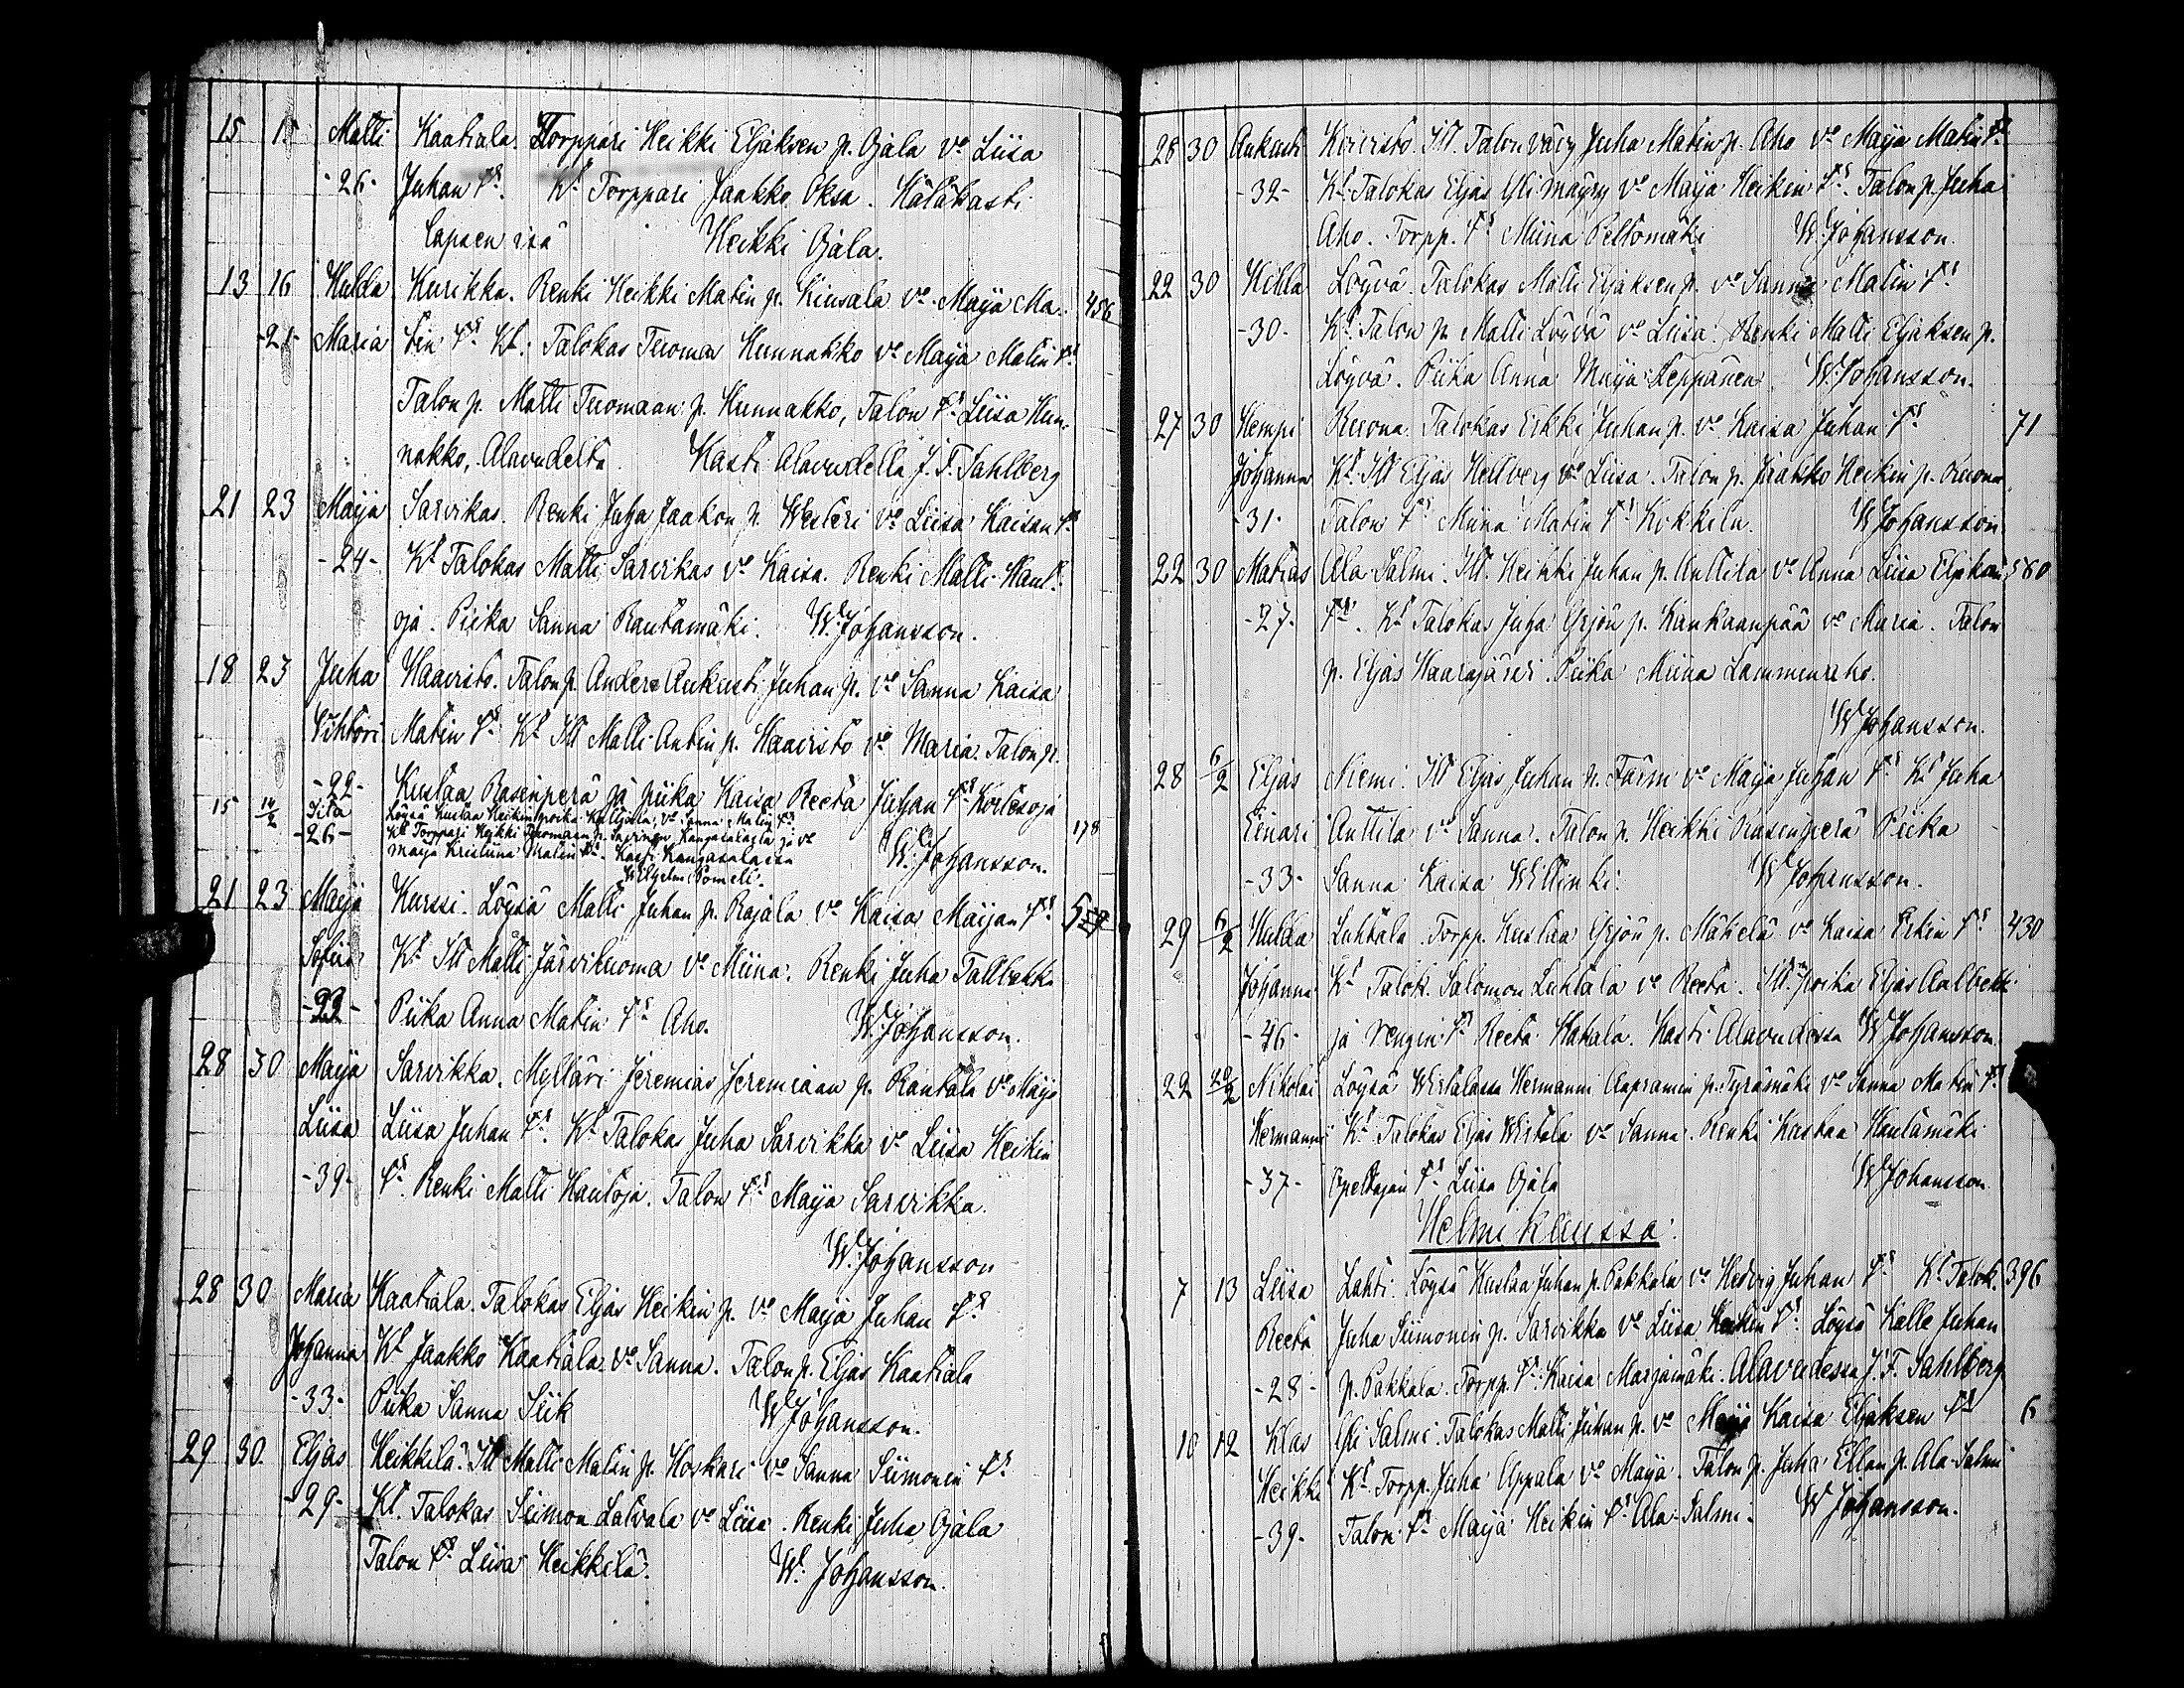 15 15 Matti Kaatiala. Torppari Heikki Eljaksen p. Ojala vo Liisa
-26- Juhan trs. Kt Torppari Jaakko Oksa. Hätäkasti
lapsen isä Heikki Ojala.
13 16 Hulda Kurikka. Renki Heikki Matin p. Kinsala vo Maija Ma- 456
-21- Maria tin trs Kt: Talokas Tuomas Hunnakko vo Maija Matin trs
Talon p. Matti Tuomaan p. Hunnakko, Talon trs Liisa Hun-
nakko, Alavudelta. Kasti Alavudella J. F. Sahlberg
21 23 Maija Sarvikas. Renki Juha Jaakon p. Westeri vo Liisa Kaisan trs
-24- Kt Talokas Matti Sarvikas vo Kaisa. Renki Matti Haut-
oja. Piika Sanna Rautamäki. W. Johansson.
18 23 Juha Haavisto. Talon p. Anders Aukusti Juhan p. vo Sanna Kaisa
Vihtori Matin trs Kt Itl Matti Antin p. Haavisto vo Maria. Talon p.
-22- Kustaa Rasinperä ja piika Kaisa Reeta Juhan trs
15 14/2 Iita Löysä Kustaa Heikin poika vo Sanna Matin trs 178
-26- Kt Torppari Heikki Tuomaan p. Kangasalasta ja vo
Maija Kristiina Matin trs. Kasti Kangasalassa W. Johansson.
Wilhelm
21 23 Maija Kurssi. Löysä Matti Juhan p. Rajala vo Kaisa Maijan trs
Sofiia Kt Itl Matti Järviluoma vo Miina. Renki Juha Tallbakka
-22- Piika Anna Matin trs Aho. W. Johansson.
28 30 Maija Sarvikka. Mylläri Jeremias Jeremiaan p. Rantala vo Maija
Liisa Liisa Juhan trs. Kt Talokas Juha Sarvikka vo Liisa Heikin
-39- trs. Renki Matti Hautoja. Talon trs Maija Sarvikka.
W. Johansson
28 30 Maria Kaatiala. Talokas Eljas Heikin p. vo Maija Juhan trs
Johanna Kt Jaakko Kaatiala vo Sanna. Talon p. Eljas Kaatiala
-33- Piika Sanna Siik W. Johansson.
29 30 Eljas Heikkilä. Itl Matti Matin p. Hoskari vo Sanna Siimonin trs
-29- Kt. Talokas Siimon Latvala vo Liisa. Renki Juha Ojala
Talon trs Liisa Heikkilä. W. Johansson.
28 30 Aukusti Koivisto. Itl. Talon vävy Juha Matin p. Aho vo Maija Matin trs
-32- Kt. Talokas Eljas Yli mäyry vo Maija Heikin trs. Talon p. Juha
Aho. Torpp. trs Miina Peltomäki W. Johansson.
22 30 Hilda Löyvä. Talokas Matti Eljaksen p. vo Sanna Matin trs
-30- Kt. Talon p. Matti Löyvä vo Liisa. Renki Matti Eljaksen p.
Löyvä. Piika Anna Maija Leppänen. W. Johansson.
27 30 Hempi Ruona. Talokas Erkki Juhan p. vo Kaisa Juhan trs 71
Johanna Kt. Itl Eljas Hellberg vo Liisa. Talon p. Jaakko Heikin p. Ruona
-31- Talon trs Miina Matin trs Kokkila. W Johansson.
22 30 Matias Ala Salmi. Itl. Heikki Juhan p. Anttila vo Anna Liisa 580
-27- trs. Kt Talokas Juha Yrjön p. Kankaanpää vo Maria. Talon
p. Eljas Haarajärvi. Piika Miina Lammenaho.
W Johansson.
28 6/2 Eljas Niemi. Itl Eljas Juhan p. Färm vo Maija Juhan trs Kt Juha
Einari Anttila vo Sanna. Talon p. Heikki Rasinperä Piika
-33- Sanna Kaisa Willinki. W Johansson.
29 6/2 Hulda Luhtala Torpp. Kustaa Yrjön p. Mäkelä vo Kaisa Erkin trs 430
Johanna Kt Talok. Salomon Luhtala vo Reeta. Itl. poika Eljas Aalbekk
-46- ja rengin trs Reeta Hakala. Kasti Alavudessa W Johansson
22 20/2 Nikolai Löysä Wistalassa Hermanni Aapramin p. Tyrämäki vo Sanna Matin trs
Hermanni Kt Talokas Eljas Wistala vo Sanna. Renki Kustaa Hautamäki
-37- Opettajan trs Liisa Ojala W Johansson
Helmikuussa:
7 13 Liisa Lahti. Löysä Kustaa Juhan p. Pakkala vo Hedvig Juhan trs Kt. Talok. 396
Reeta Juha Siimonin p. Sarvikka vo Liisa Heikin trs. Löysä Kalle Juhan
-28- p. Pakkala. Torpp. trs. Kaisa Marjamäki. Alavudessa J. F. Sahlberg
10 12 Klas Yli Salmi. Talokas Matti Juhan p. vo Maija Kaisa Eljaksen trs 6
Heikki Kt. Torpp. Juha Uppala vo Maija. Talon p. Juha Ellan p. Ala-Salmi
-39- Talon trs Maija Heikin trs Ala-Salmi. W Johansson.